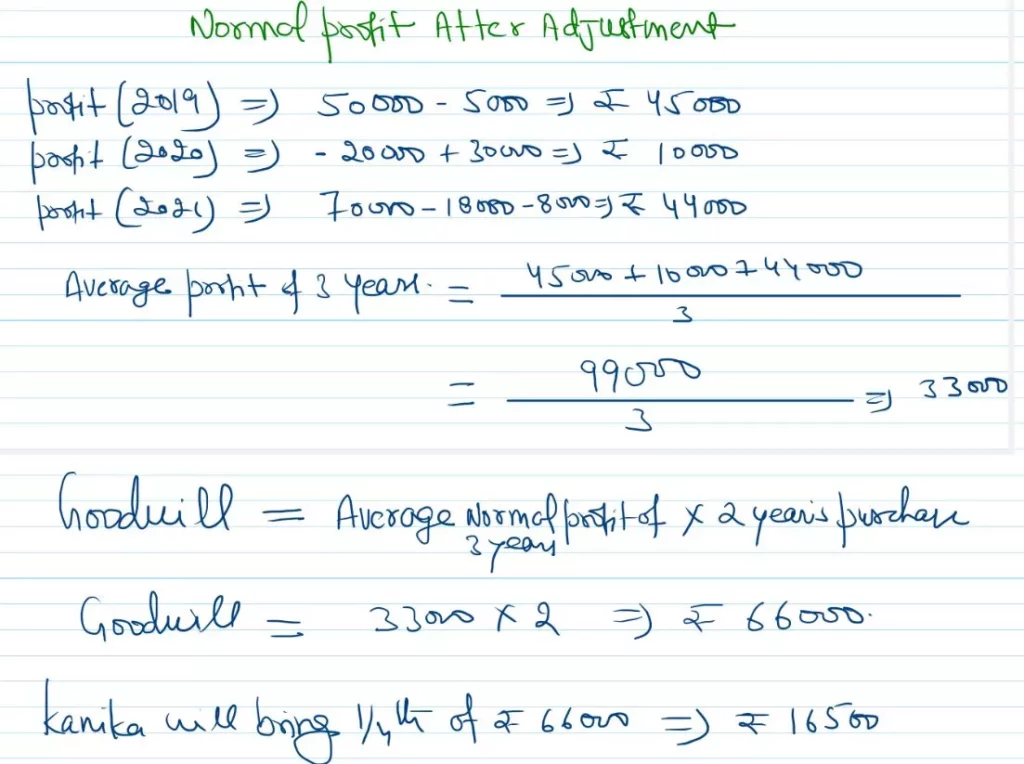 Normal profit After Adjustment
profit (2019) => 50000 - 5000 => ₹ 45000
profit (2020) => - 20000 + 30000 => ₹ 10000
profit (2021) => 70000 - 18000 - 8000 => ₹ 44000
Average profit of 3 years. = 45000 + 10000 + 44000 / 3
= 99000 / 3 => 33000
Goodwill = Average Normal profit of 3 years × 2 year's purchase
Goodwill = 33000 × 2 => ₹ 66000.
Kanika will bring 1/4 th of ₹ 66000 => ₹ 16500